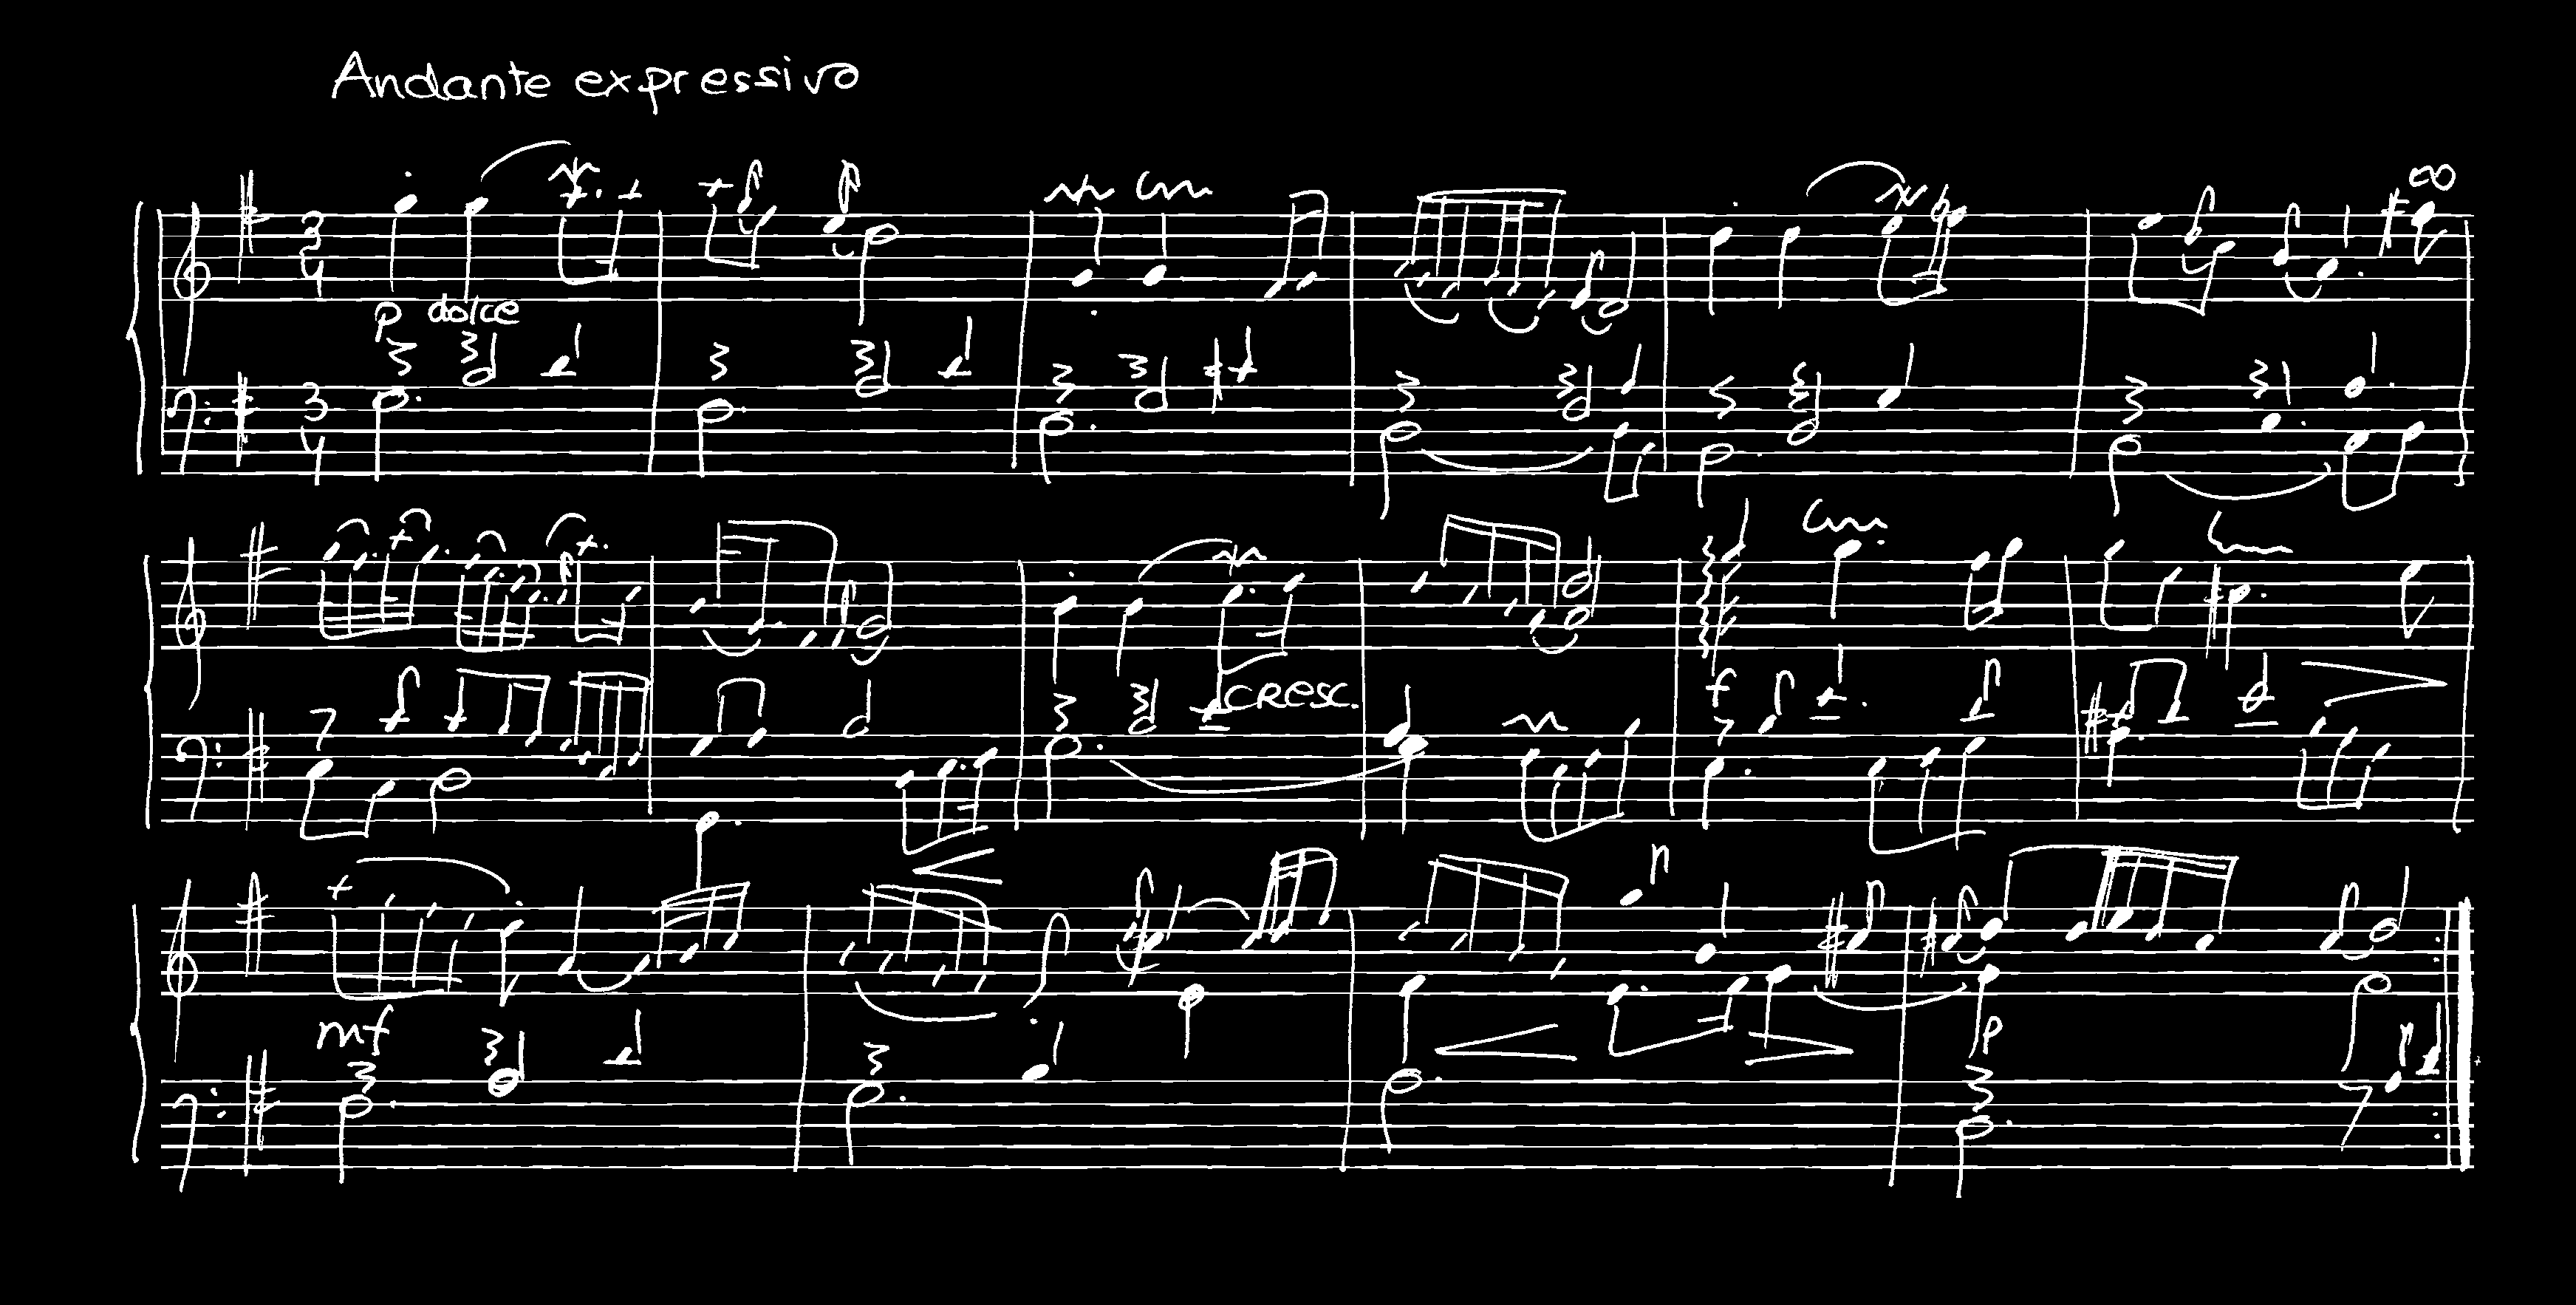 Andante expressivo
3 4
p dolce
3 4
cresc.
f
mf
p